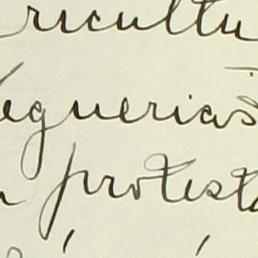 ricultu
eguerias
protesta